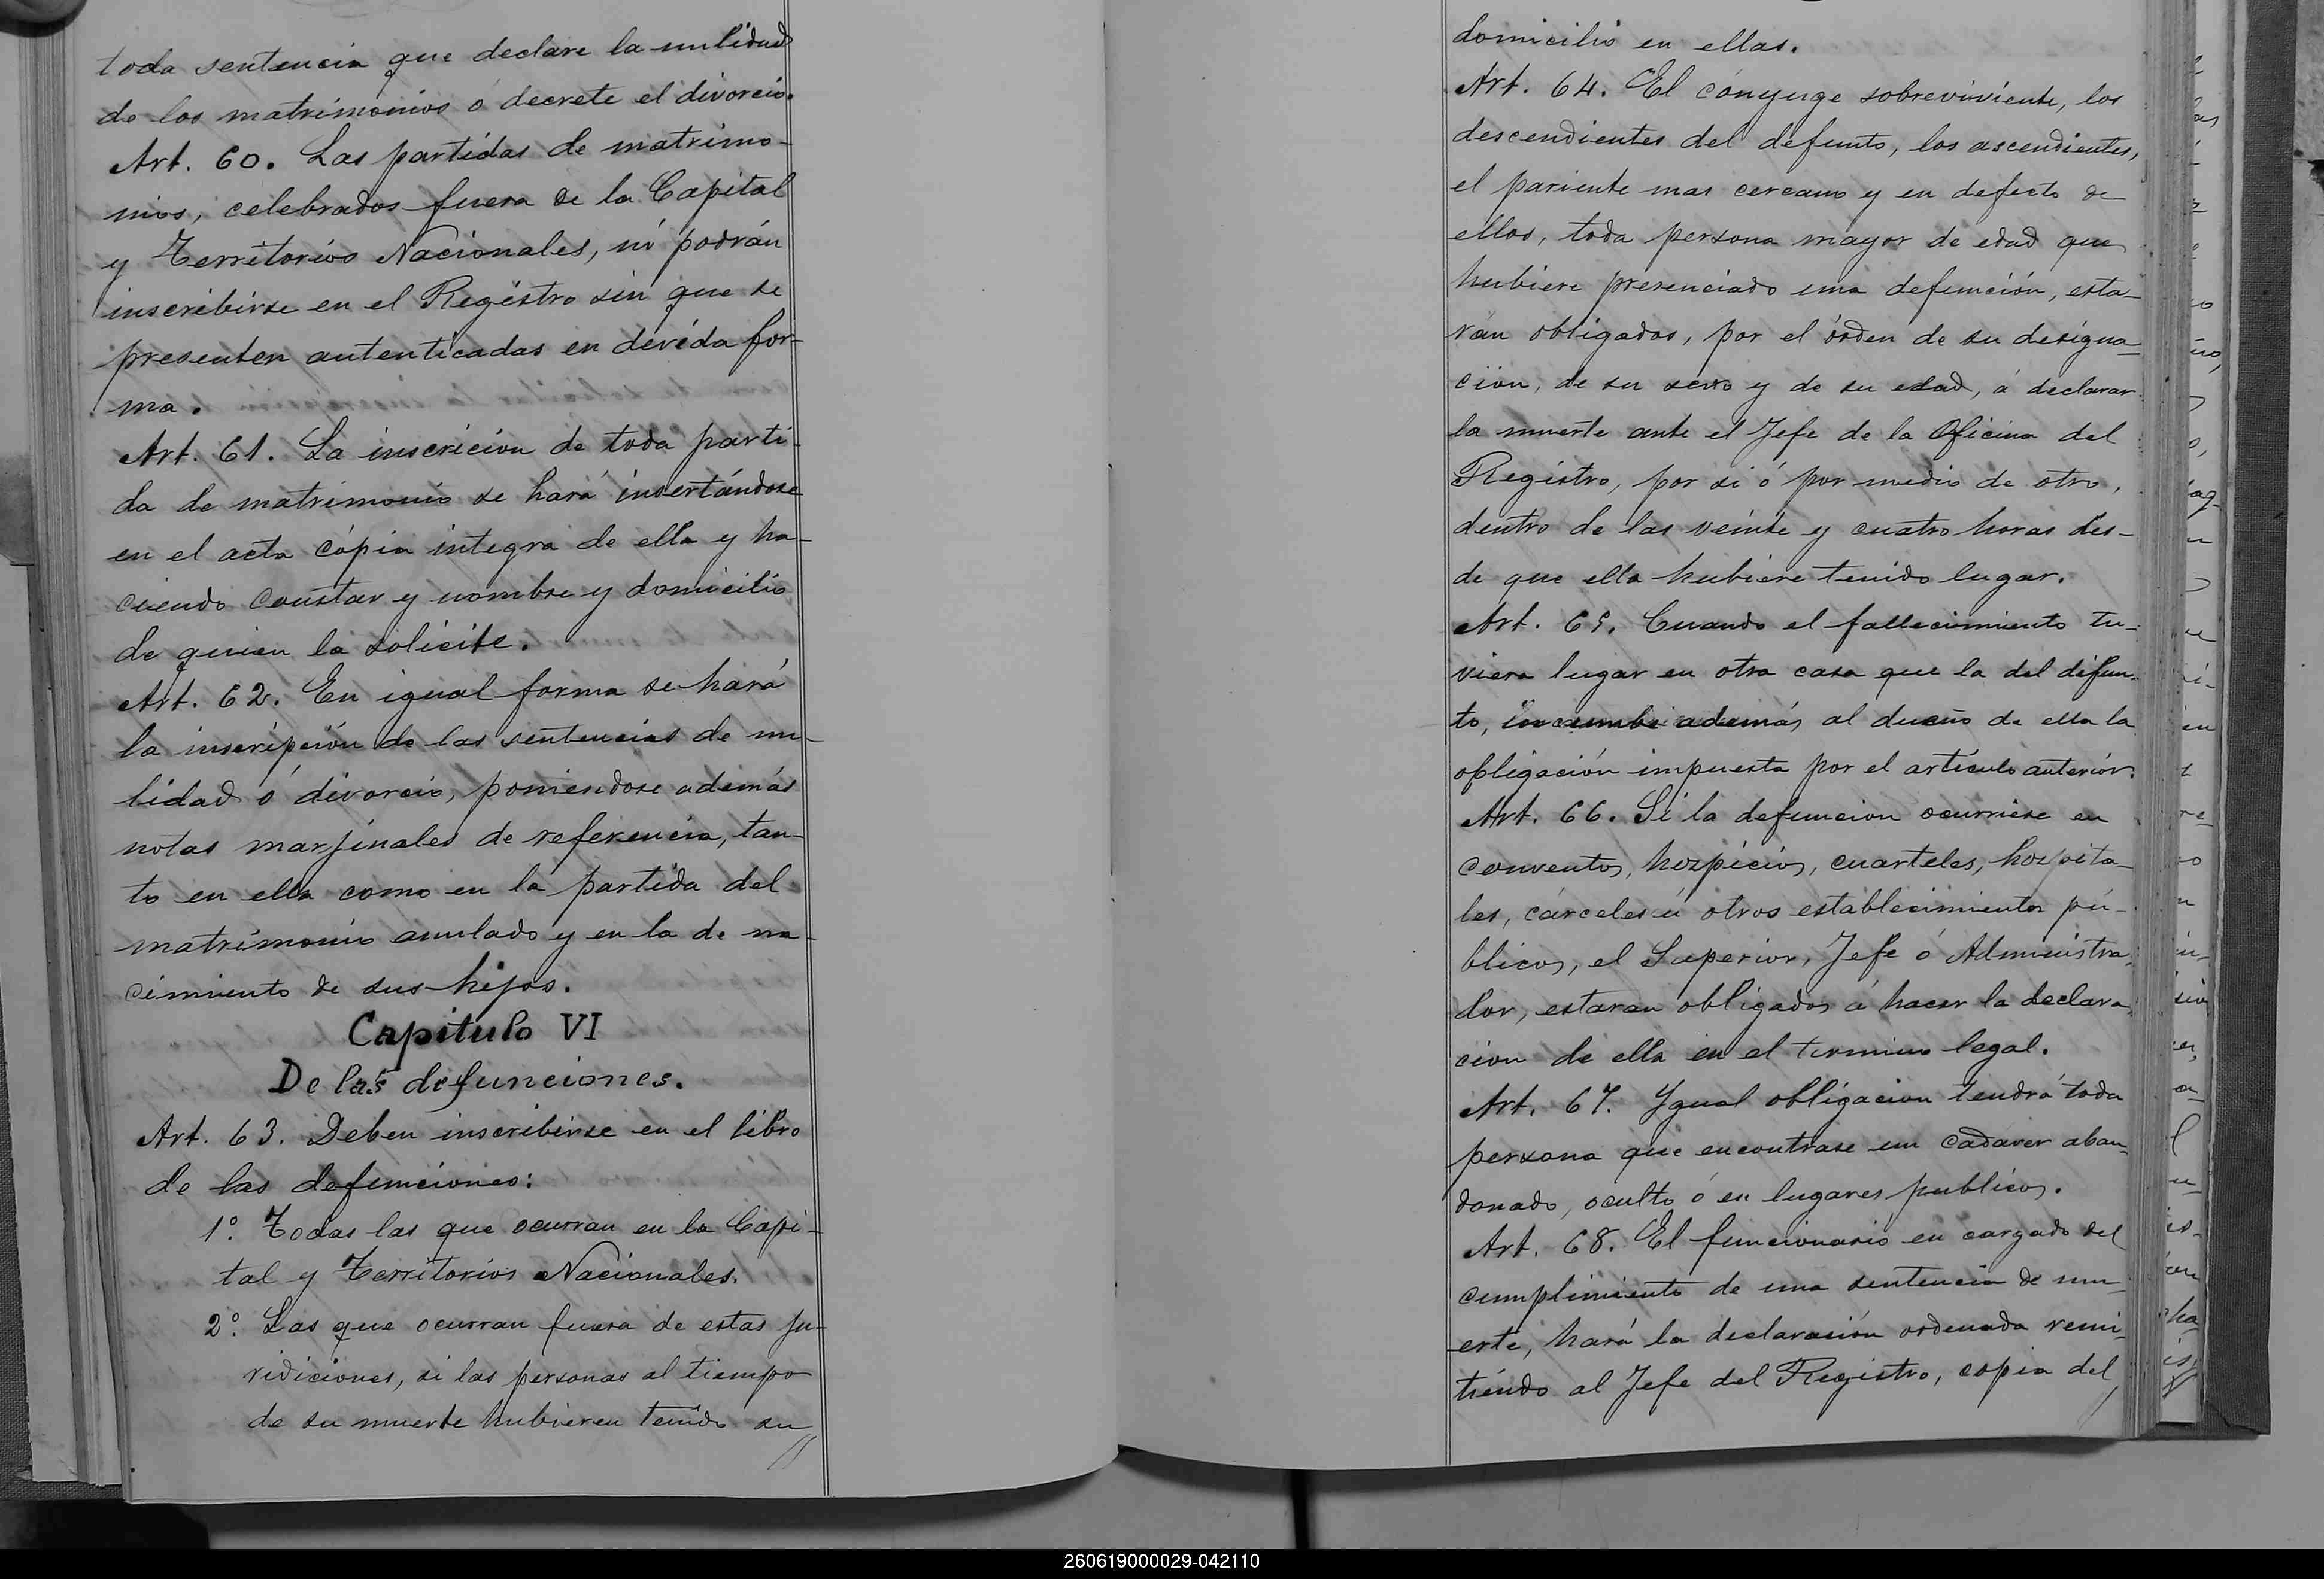 toda sentencia que declare la nulidad
de los matrimonios ó decrete el divorcio.
Art. 60. Las partidas de matrimo-
nios, celebrados fuera de la Capital
y Territorios Nacionales, nó podrán
inscribirse en el Registro sin que se
presenten autenticadas en devida for-
ma.
Art. 61. La inscricion de toda parti-
da de matrimonio se hará insertándose
en el acta cópia integra de ella y ha-
ciendo constar y nombre y domicilio
de quien la solicite.
Art. 62. En igual forma se hará
la inscripción de las sentencias de nu-
lidad ó divorcio, poniendose además
notas marjinales de referencia, tan-
to en ella como en la partida del
matrimonio anulado y en la de na-
cimiento de sus hijos.
Capitulo VI
De las defunciones.
Art. 63. Deben inscribirse en el libro
de las defunciones:
1º. Todas las que ocurran en la Capi-
tal y Territorios Nacionales.
2º. Las que ocurran fuera de estas ju-
ridiciones, si las personas al tiempo
de su muerte hubieren tenido su
domicilio en ellas.
Art. 64. El cónyuge sobreviviente, los
descendientes del defunto, los ascendientes,
el pariente mas cercano y en defecto de
ellos, toda persona mayor de edad que
hubiere presenciado una defunción, esta-
rán obligados, por el órden de su designa-
cion, de su sexo y de su edad, á declarar
la muerte ante el Jefe de la Oficina del
Registro, por si ó por medio de otro,
dentro de las veinte y cuatro horas des-
de que ella hubiere tenido lugar.
Art. 65. Cuando el fallecimiento tu-
viera lugar en otra casa que la del difun-
to, incumbe además al dueño de ella la
obligación impuesta por el artículo anterior.
Art. 66. Si la defuncion ocurriese en
conventos, hospicios, cuarteles, hospita-
les, cárceles ú otros establecimientos pú-
blicos, el Superior, Jefe ó Administra-
dor, estaran obligados á hacer la declara-
cion de ella en el termino legal.
Art. 67. Ygual obligacion tendrá toda
persona que encontrase un cadaver aban-
donado, oculto ó en lugares publicos.
Art. 68. El funcionario en cargado del
cumplimiento de una sentencia de mu-
erte, hará la declaración ordenada remi-
tiéndo al Jefe del Registro, copia del
260619000029-042110